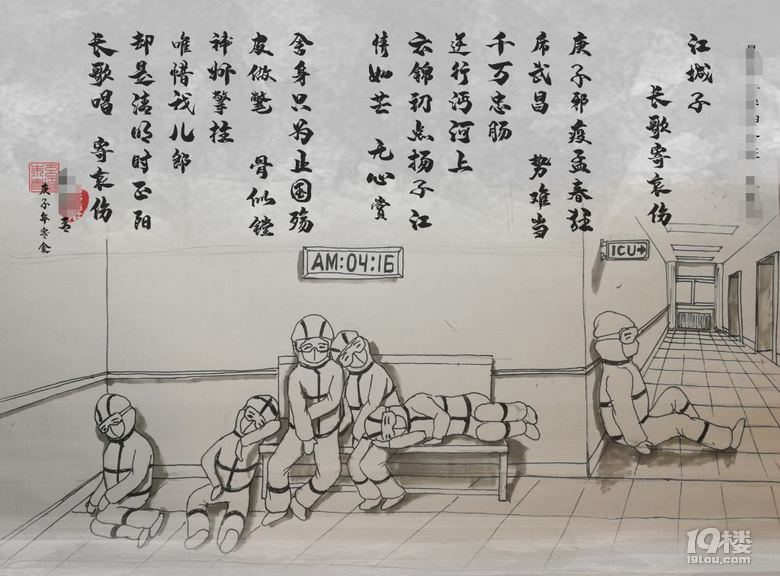 江城子
长歌寄哀伤
庚子邪疫孟春狂
席武昌 势难当
千万忠肠
逆行沔河上
云锦初点扬子江
情如芒 无心赏
舍身只为止国殇
皮做 骨似镗
擎挂
唯惜我儿郎
却是清明时正阳
长歌唱 寄哀伤
庚子年寒食
AM:04:16
ICU→
19楼
19lou.com